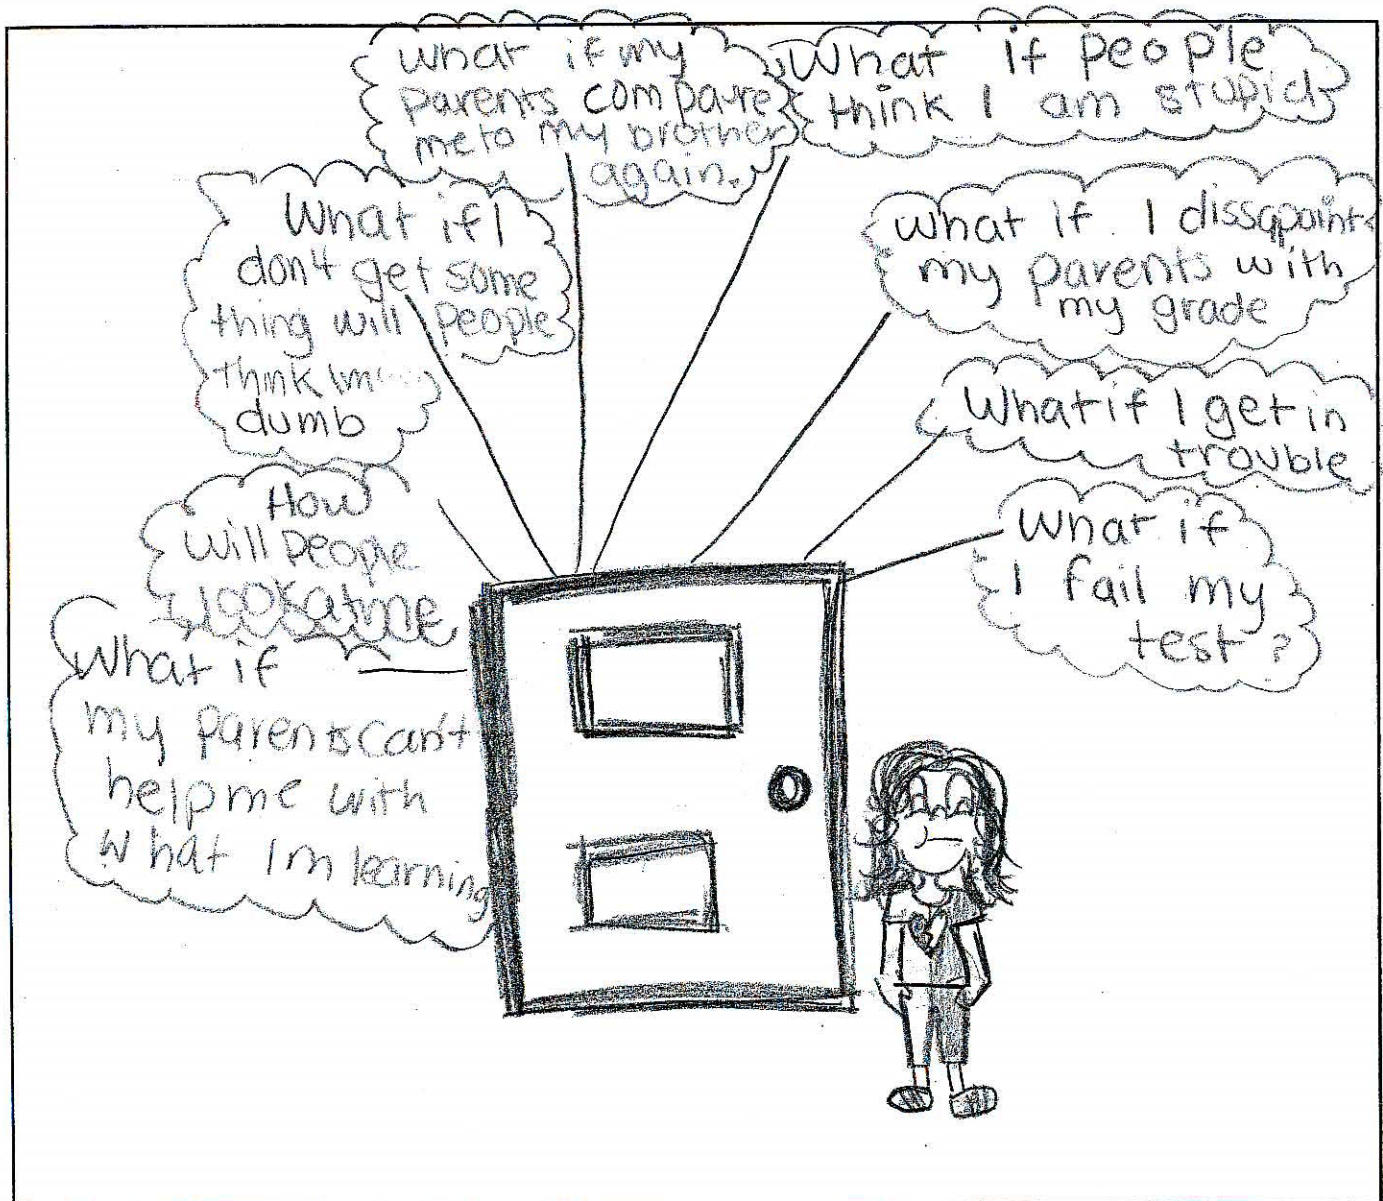 What if my
parents compare
me to my brother
again.
What if people
think I am stupid
What if I
don't get some
thing will people
think Im
dumb
what if I dissapoint
my parents with
my grade
What if I get in
trouble
How
will people
look at me
What if
I fail my
test?
What if
my parents can't
help me with
what Im learning